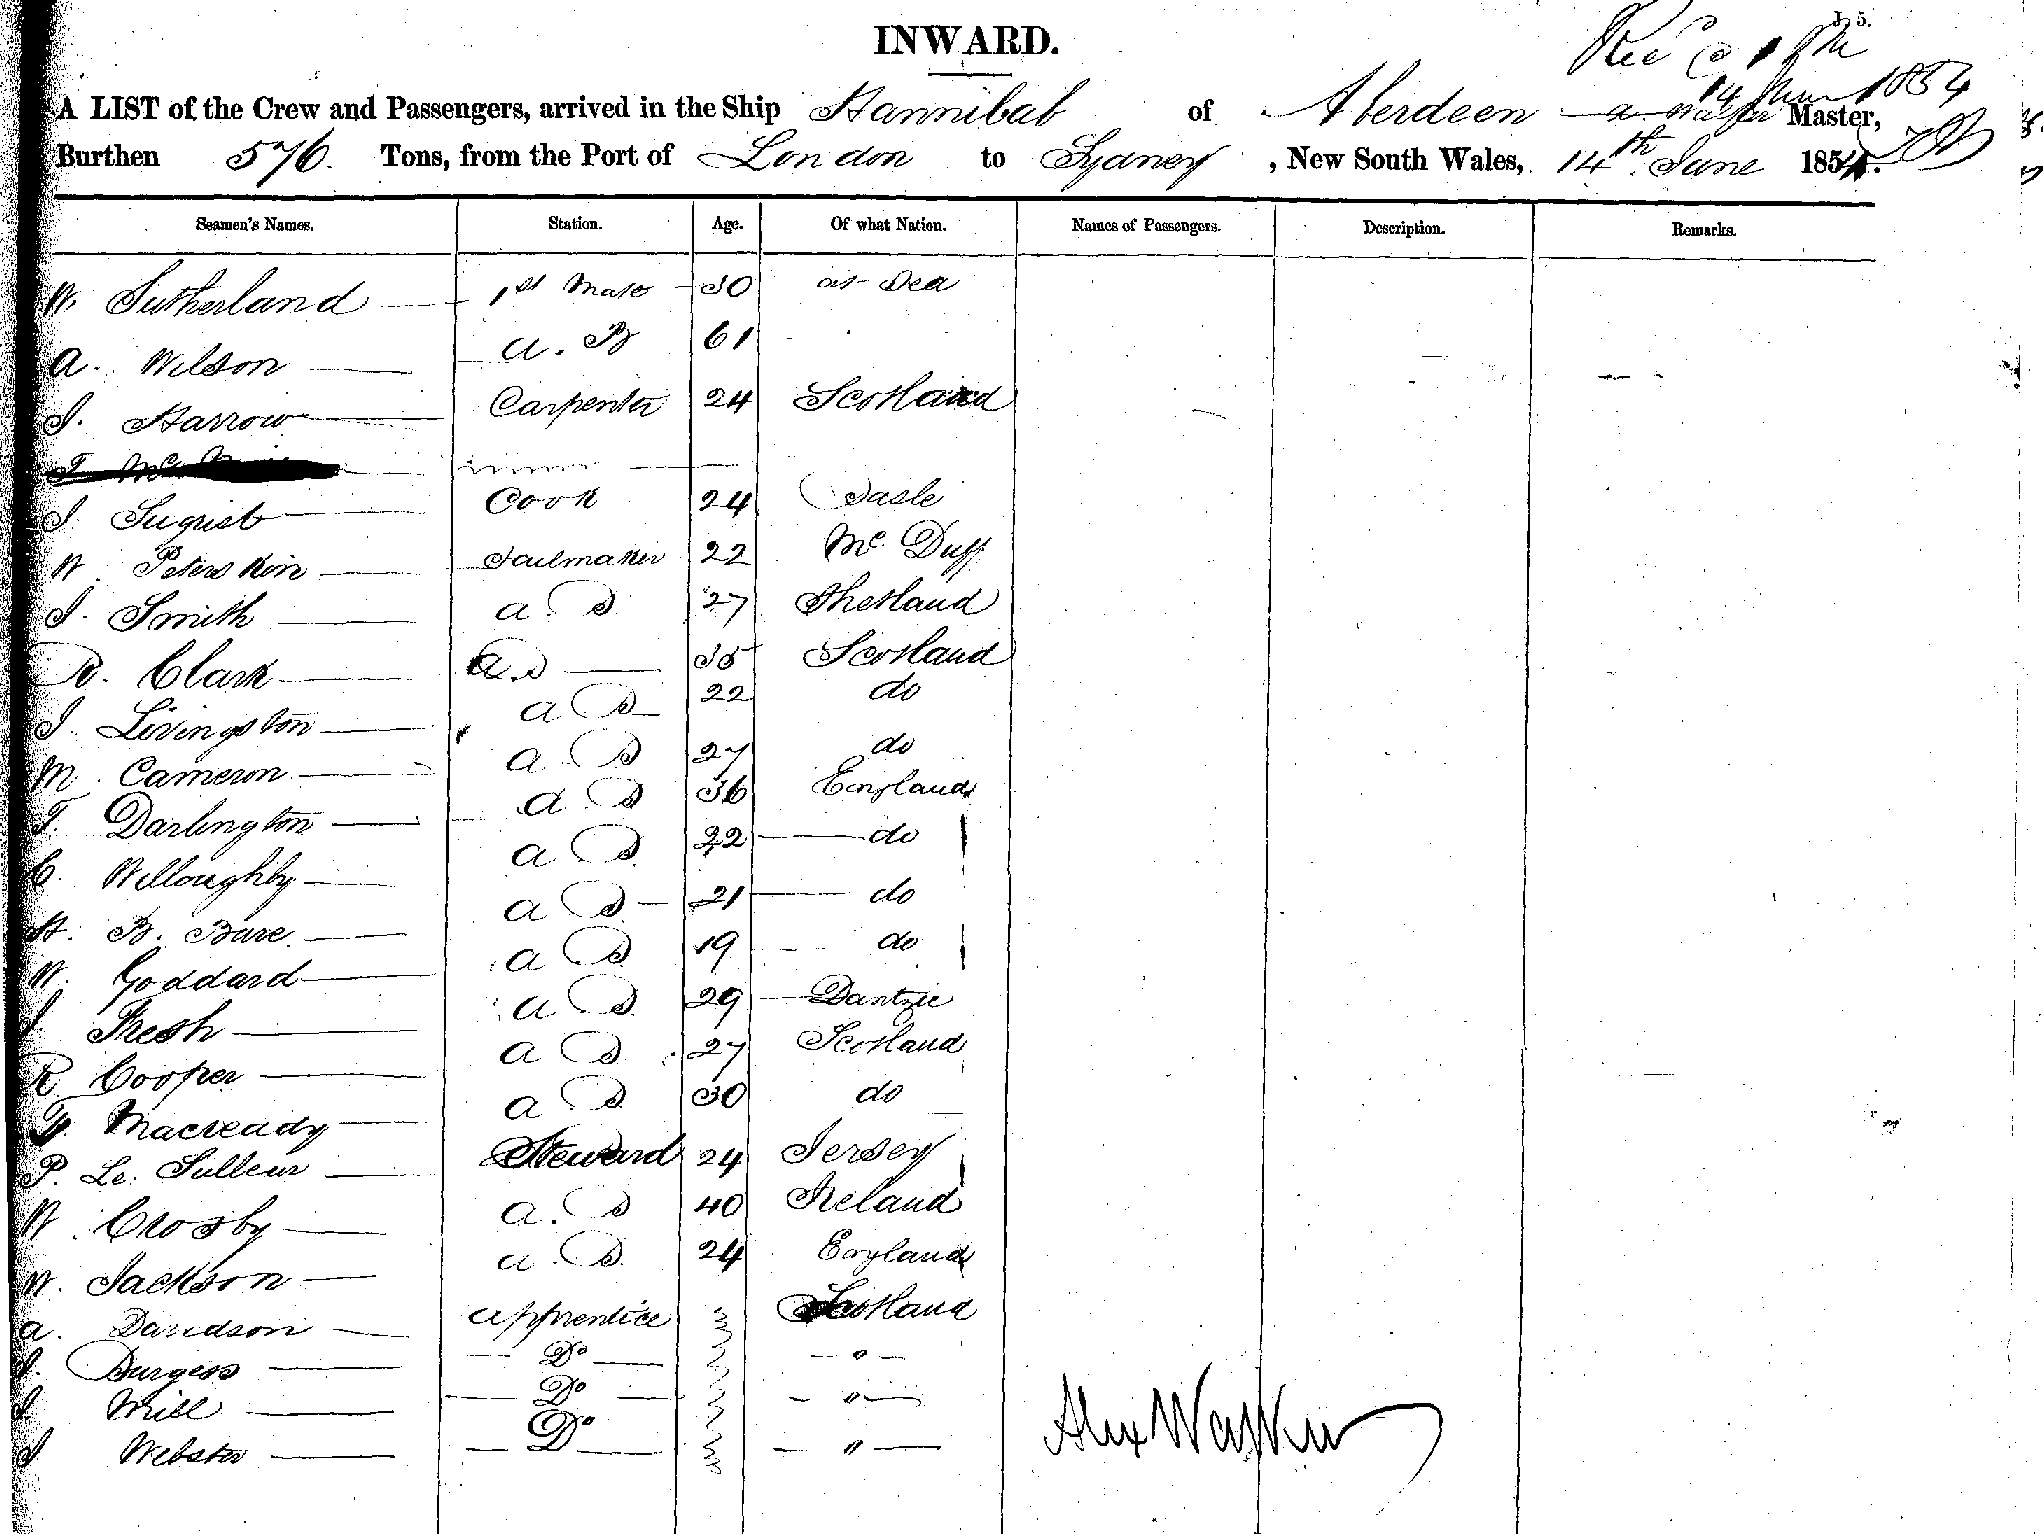 INWARD.
14 June 1854
A LIST of the Crew and Passengers, arrived in the Ship Hannibal of Aberdeen A Walker Master,
Burthen 576. Tons, from the Port of London to Sydney, New South Wales, 14th June 1854.
Seamen's Names. Station. Age. Of what Nation. Names of Passengers. Description. Remarks.
W Sutherland 1st Mate 30 at Sea
A. Wilson a. B 61
J. Harrow Carpenter 24 Scotland
J Cook 24
W Peterskin Sailmaker 22 Mc Duff
J. Smith a. S 27 Shetland
R. Clark a.s 35 Scotland
J. Livingston a S 22 do
M. Cameron a S 27 do
T. Darlington a S 36 England
C. Willoughby a S 22 do
H. B. Bare a S 21 do
W. Goddard a S 19 do
J Fresh a S 29 Dantzic
R Cooper a S 27 Scotland
Macready a S 30 do
P. Le. Sulleur Steward 24 Jersey
W. Crosby a. S 40 Ireland
W. Jackson a. S. 24 England
a. Davidson apprentice Scotland
J. Burgess Do "
J Mill Do "
J Webster Do "
Alex Walker